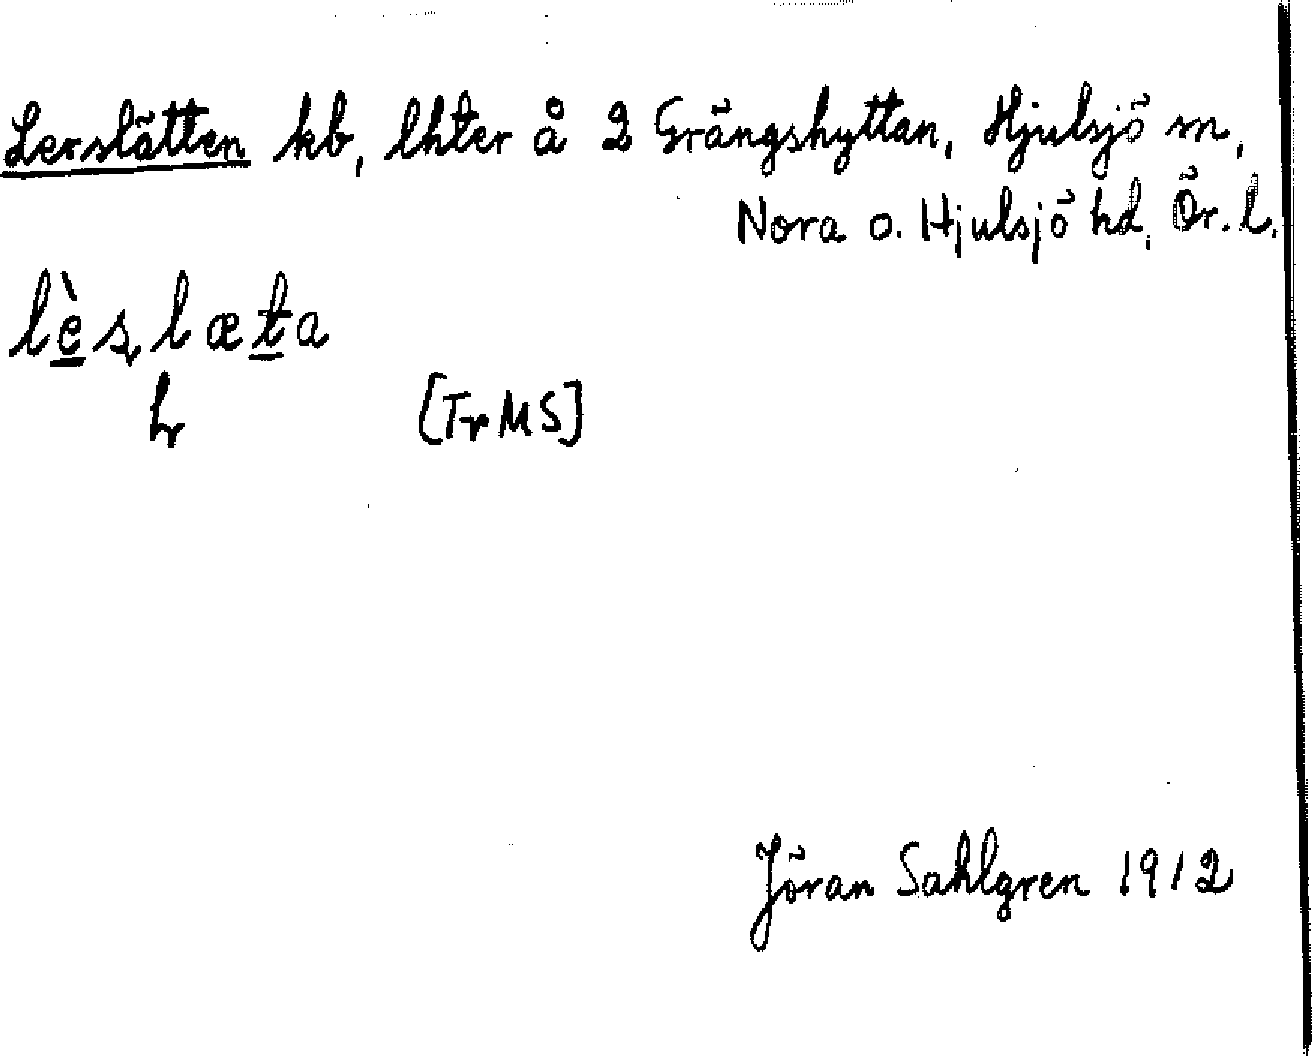 Lerslätten kb, lhter å 2 Grängshyttan, Hjulsjö sn,
Nora o. Hjulsjö hd, Ör. l.
lèslæta
[Tr MS]
Jöran Sahlgren 1912